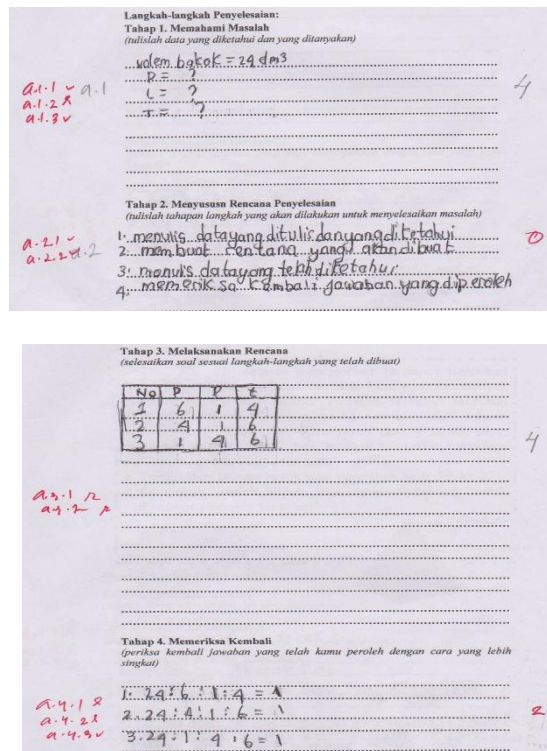 Langkah-langkah Penyelesaian:
Tahap 1. Memahami Masalah
(tulislah data yang diketahui dan yang ditanyakan)
volem bakak = 24 dm3
P = ?
a.1.1 ✓ a.1
L = ?
a.1.2
4
T = ?
a.1.3 ✓
Tahap 2. Menyususn Rencana Penyelesaian
(tulislah tahapan langkah yang akan dilakukan untuk menyelesaikan masalah)
a.2.1 ✓
1. menulis data yang ditulis dan yang diketahui
0
a.2.2 a.2
2. membuat rentana yang akan dibuat
3. menulis data yang telah diketahui
4. memeriksa kembali jawaban yang diperoleh
Tahap 3. Melaksanakan Rencana
(selesaikan soal sesuai langkah-langkah yang telah dibuat)
No P l t
1 6 1 4
2 4 1 6
3 1 4 6
4
a.3.1
Tahap 4. Memeriksa Kembali
(periksa kembali jawaban yang telah kamu peroleh dengan cara yang lebih
singkat)
1. 24 : 6 : 1 : 4 = 1
a.4.1
2. 24 : 4 : 1 : 6 = 1
2
a.4.2
3. 24 : 1 : 4 : 6 = 1
a.4.3 ✓